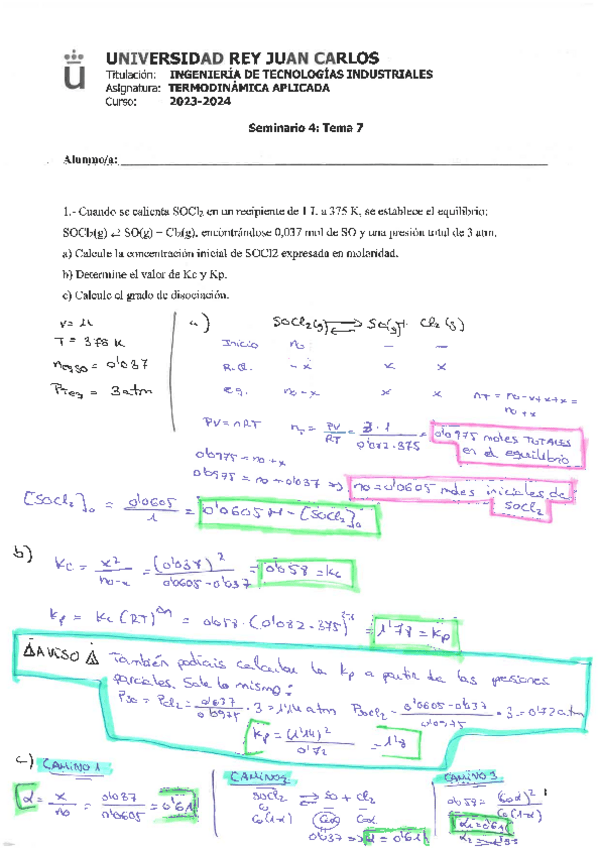 UNIVERSIDAD REY JUAN CARLOS
Titulación: INGENIERÍA DE TECNOLOGÍAS INDUSTRIALES
Asignatura: TERMODINÁMICA APLICADA
Curso: 2023-2024
Seminario 4: Tema 7
Alumno/a:
1.- Cuando se calienta SOCl₂ en un recipiente de 1 L a 375 K, se establece el equilibrio:
SOCl₂(g) ⇄ SO(g) + Cl₂(g), encontrándose 0,037 mol de SO y una presión total de 3 atm.
a) Calcule la concentración inicial de SOCl2 expresada en molaridad.
b) Determine el valor de Kc y Kp.
c) Calcule el grado de disociación.
V = 1L
T = 375 K
n SO = 0'037
P = 3 atm
a) SOCl₂(g) ⇄ SO(g) + Cl₂(g)
Inicio no - -
R.Q. -x x x
eq. no-x x x nT = no-x+x+x = no+x
PV = nRT nT = PV/RT = 3·1/0'082·375 = 0'0975 moles TOTALES en el equilibrio
0'0975 = no + x
0'0975 = no + 0'037 => no = 0'0605 moles iniciales de SOCl₂
[SOCl₂]₀ = 0'0605/1 = 0'0605 M = [SOCl₂]₀
b) Kc = x²/no-x = (0'037)²/0'0605-0'037 = 0'058 = Kc
Kp = Kc (RT)^Δn = 0'058 · (0'082 · 375)^2-1 = 1'78 = Kp
⚠ AVISO ⚠ También podíais calcular la Kp a partir de las presiones
parciales. Sale lo mismo:
PSO = PCl₂ = 0'037/0'0975 · 3 = 1'14 atm PSOCl₂ = 0'0605-0'037/0'0975 · 3 = 0'72 atm
Kp = (1'14)²/0'72 = 1'8
c) CAMINO 1 CAMINO 2 CAMINO 3
α = x/no = 0'037/0'0605 = 0'61
SOCl₂ ⇄ SO + Cl₂
Co
Co(1-α) Coα Coα
0'037 => α = 0'61
0'058 = (Coα)²/Co(1-α)
α₁ = 0'61